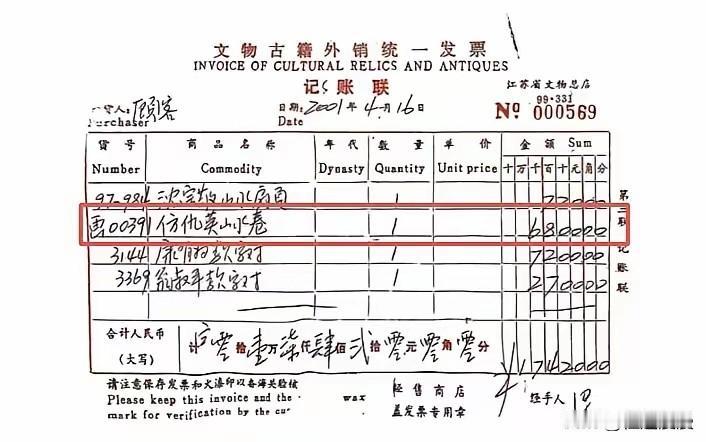 文物古籍外销统一发票
INVOICE OF CULTURAL RELICS AND ANTIQUES
记账联
江苏省文物总店
99·331
货人: 顾客
Purchaser
日期: 2001年4月16日
Date
No 000569
货号 商品名称 年代 数量 单价 金额 Sum
Number Commodity Dynasty Quantity Unit price 十万千百十元角分
97-984 沈宗敬山水扇 1 72000
画00391 仿仇英山水卷 1 680000
3144 款字对 1 720000
3369 翁叔平款字对 1 270000
第二联 记账联
合计人民币 零拾壹万柒仟肆佰贰拾零元零角零分 ¥1742000
(大写)
请注意保存发票和火漆印以备海关验核
Please keep this invoice and the wax
mark for verification by the cu
经售商店
盖发票专用章
经手人